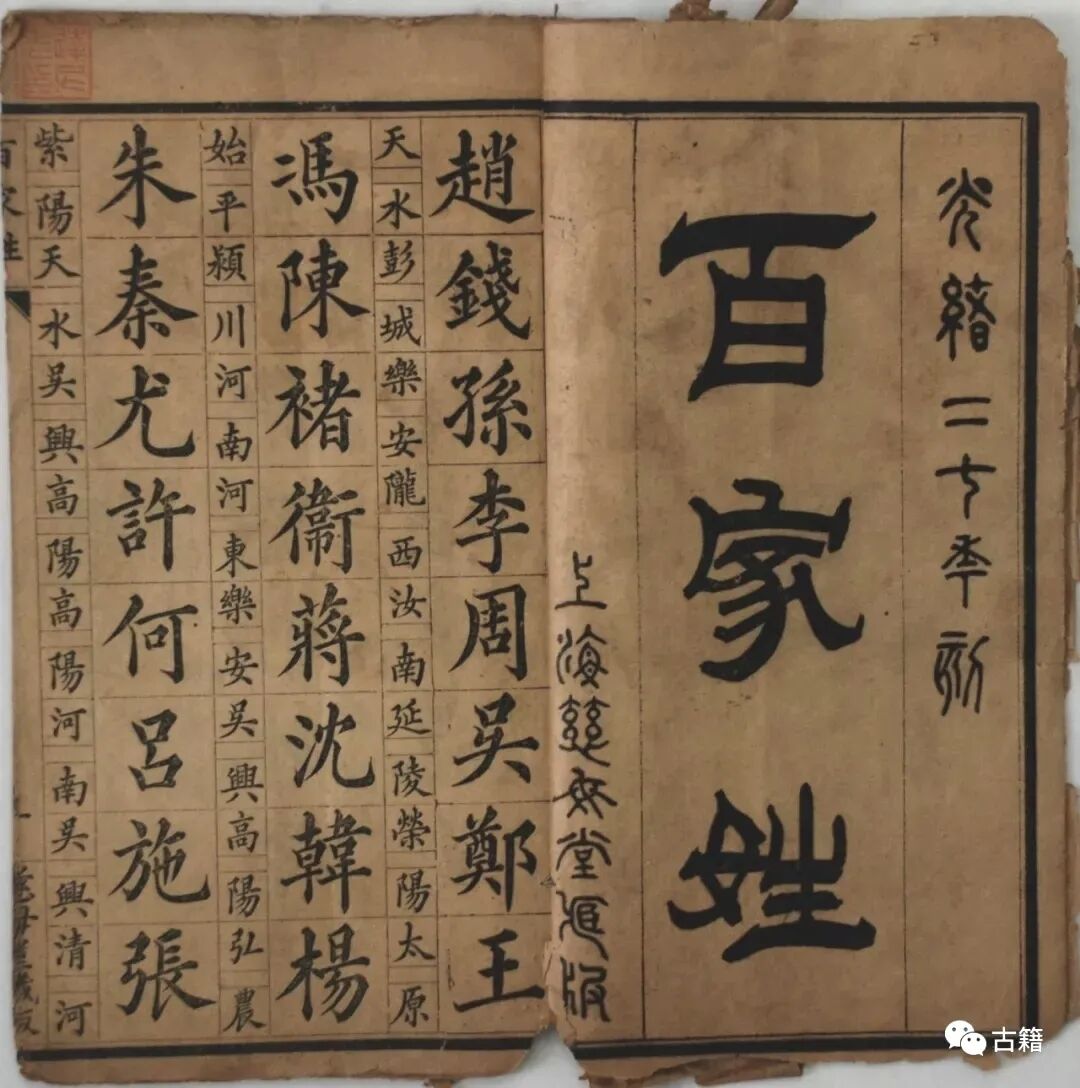 光緒二七秊刻
百家姓
上海慈母堂藏版
趙錢孫李周吳鄭王
天水彭城樂安隴西汝南延陵榮陽太原
馮陳褚衞蔣沈韓楊
始平潁川河南河東樂安吳興高陽弘農
朱秦尤許何呂施張
紫陽天水吳興高陽高陽河南吳興清河
百家姓
慈母堂藏版
古籍